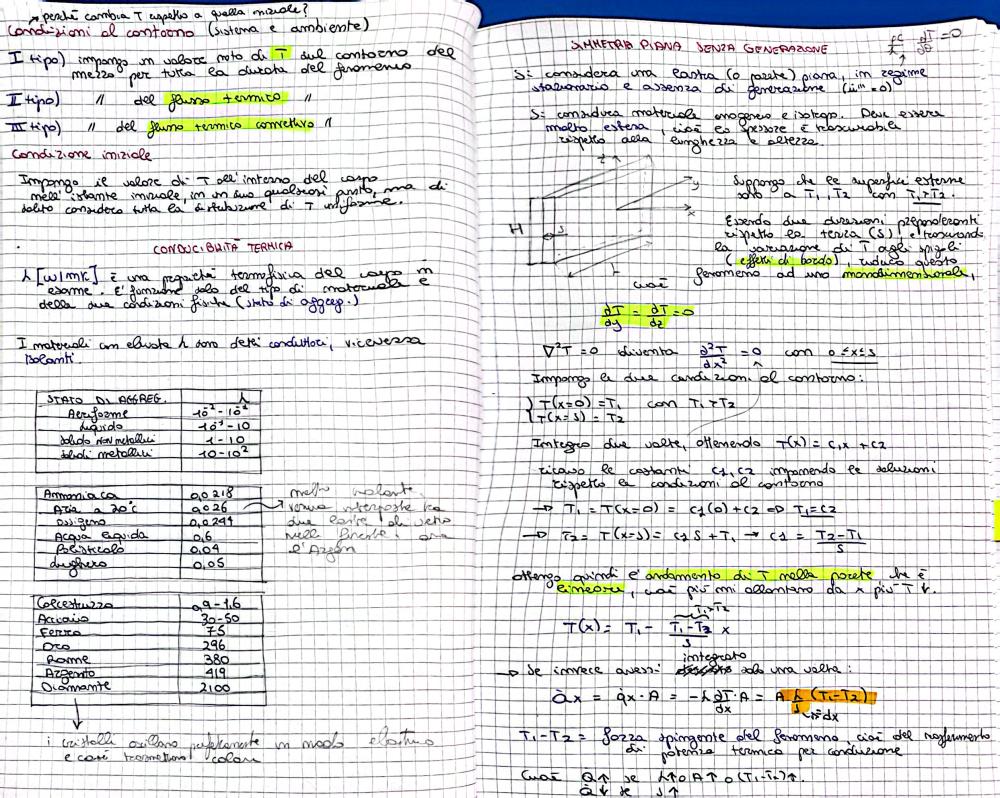 perché cambia T rispetto a quella iniziale?
Condizioni al contorno (sistema e ambiente)
I tipo) impongo un valore noto di T sul contorno del
mezzo per tutta la durata del fenomeno
II tipo) " del flusso termico "
III tipo) " del flusso termico convettivo "
Condizione iniziale
Impongo il valore di T all'interno del corpo
nell'istante iniziale, in un suo qualsiasi punto, ma di
solito considero tutta la distribuzione di T uniforme.
CONDUCIBILITÀ TERMICA
λ [W/mK] è una proprietà termofisica del corpo in
esame. E' funzione solo del tipo di materiale e
della sue condizioni fisiche (stato di aggreg.)
I materiali con elevata λ sono detti conduttori, viceversa
isolanti.
STATO DI AGGREG. λ
Aeriforme 10⁻² - 10⁻¹
liquido 10⁻¹ - 10
solido non metallici 1 - 10
solidi metallici 10 - 10²
Ammoniaca 0,0218
Aria a 20°C 0,026
ossigeno 0,0244
Acqua liquida 0,6
Polistirolo 0,04
sughero 0,05
molto isolante,
veniva interposta tra
due lastre di vetro
nelle finestre, ora
l'Argon
Calcestruzzo 0,9 - 1,6
Acciaio 30-50
Ferro 75
Oro 296
Rame 380
Argento 419
Diamante 2100
i cristalli oscillano perfettamente in modo elastico
e così trasmettono calore
SIMMETRIA PIANA SENZA GENERAZIONE
ρc/λ ∂T/∂θ = 0
Si considera una lastra (o parete) piana, in regime
stazionario e assenza di generazione (u''' = 0)
Si considera materiale omogeneo e isotropo. Deve essere
molto estesa, cioè lo spessore è trascurabile
rispetto alla lunghezza e altezza.
z
y
x
H
s
L
Suppongo che le superfici esterne
sono a T₁, T₂ con T₁>T₂
Essendo due direzioni preponderanti
rispetto la terza (s), e trascurando
la variazione di T agli spigoli
(effetti di bordo), riduco questo
fenomeno ad uno monodimensionale,
cioè
∂T/∂y = ∂T/∂z = 0
∇²T = 0 diventa ∂²T/dx² = 0 con 0≤x≤s
Impongo le due condizioni al contorno:
{ T(x=0) = T₁ con T₁>T₂
{ T(x=s) = T₂
Integro due volte, ottenendo T(x) = C₁x + C₂
ricavo le costanti C1, C2 imponendo le soluzioni
rispetto le condizioni al contorno
→ T₁ = T(x=0) = C1(0) + C2 ⇒ T₁ = C2
→ T₂ = T(x=s) = C1 s + T₁ → C1 = (T₂-T₁)/s
Ottengo quindi l'andamento di T nella parete, che è
lineare, cioè più mi allontano da x più T ↓.
T₁>T₂
T(x) = T₁ - (T₁-T₂)/s x
integrato
→ Se invece avessi solo una volta:
Q̇x = q̇x · A = -λ ∂T/dx · A = A λ/s (T₁-T₂)
T₁-T₂ = forza spingente del fenomeno, cioè del trasferimento
di potenza termica per conduzione
Cioè Q̇↑ se λ↑ o A↑ o (T₁-T₂)↑.
Q̇↓ se s↑